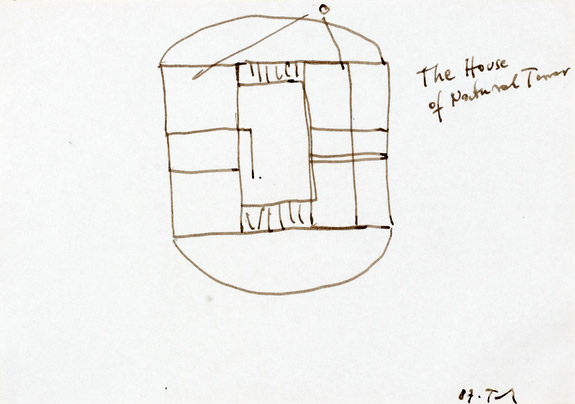 The House
of Natural Tower